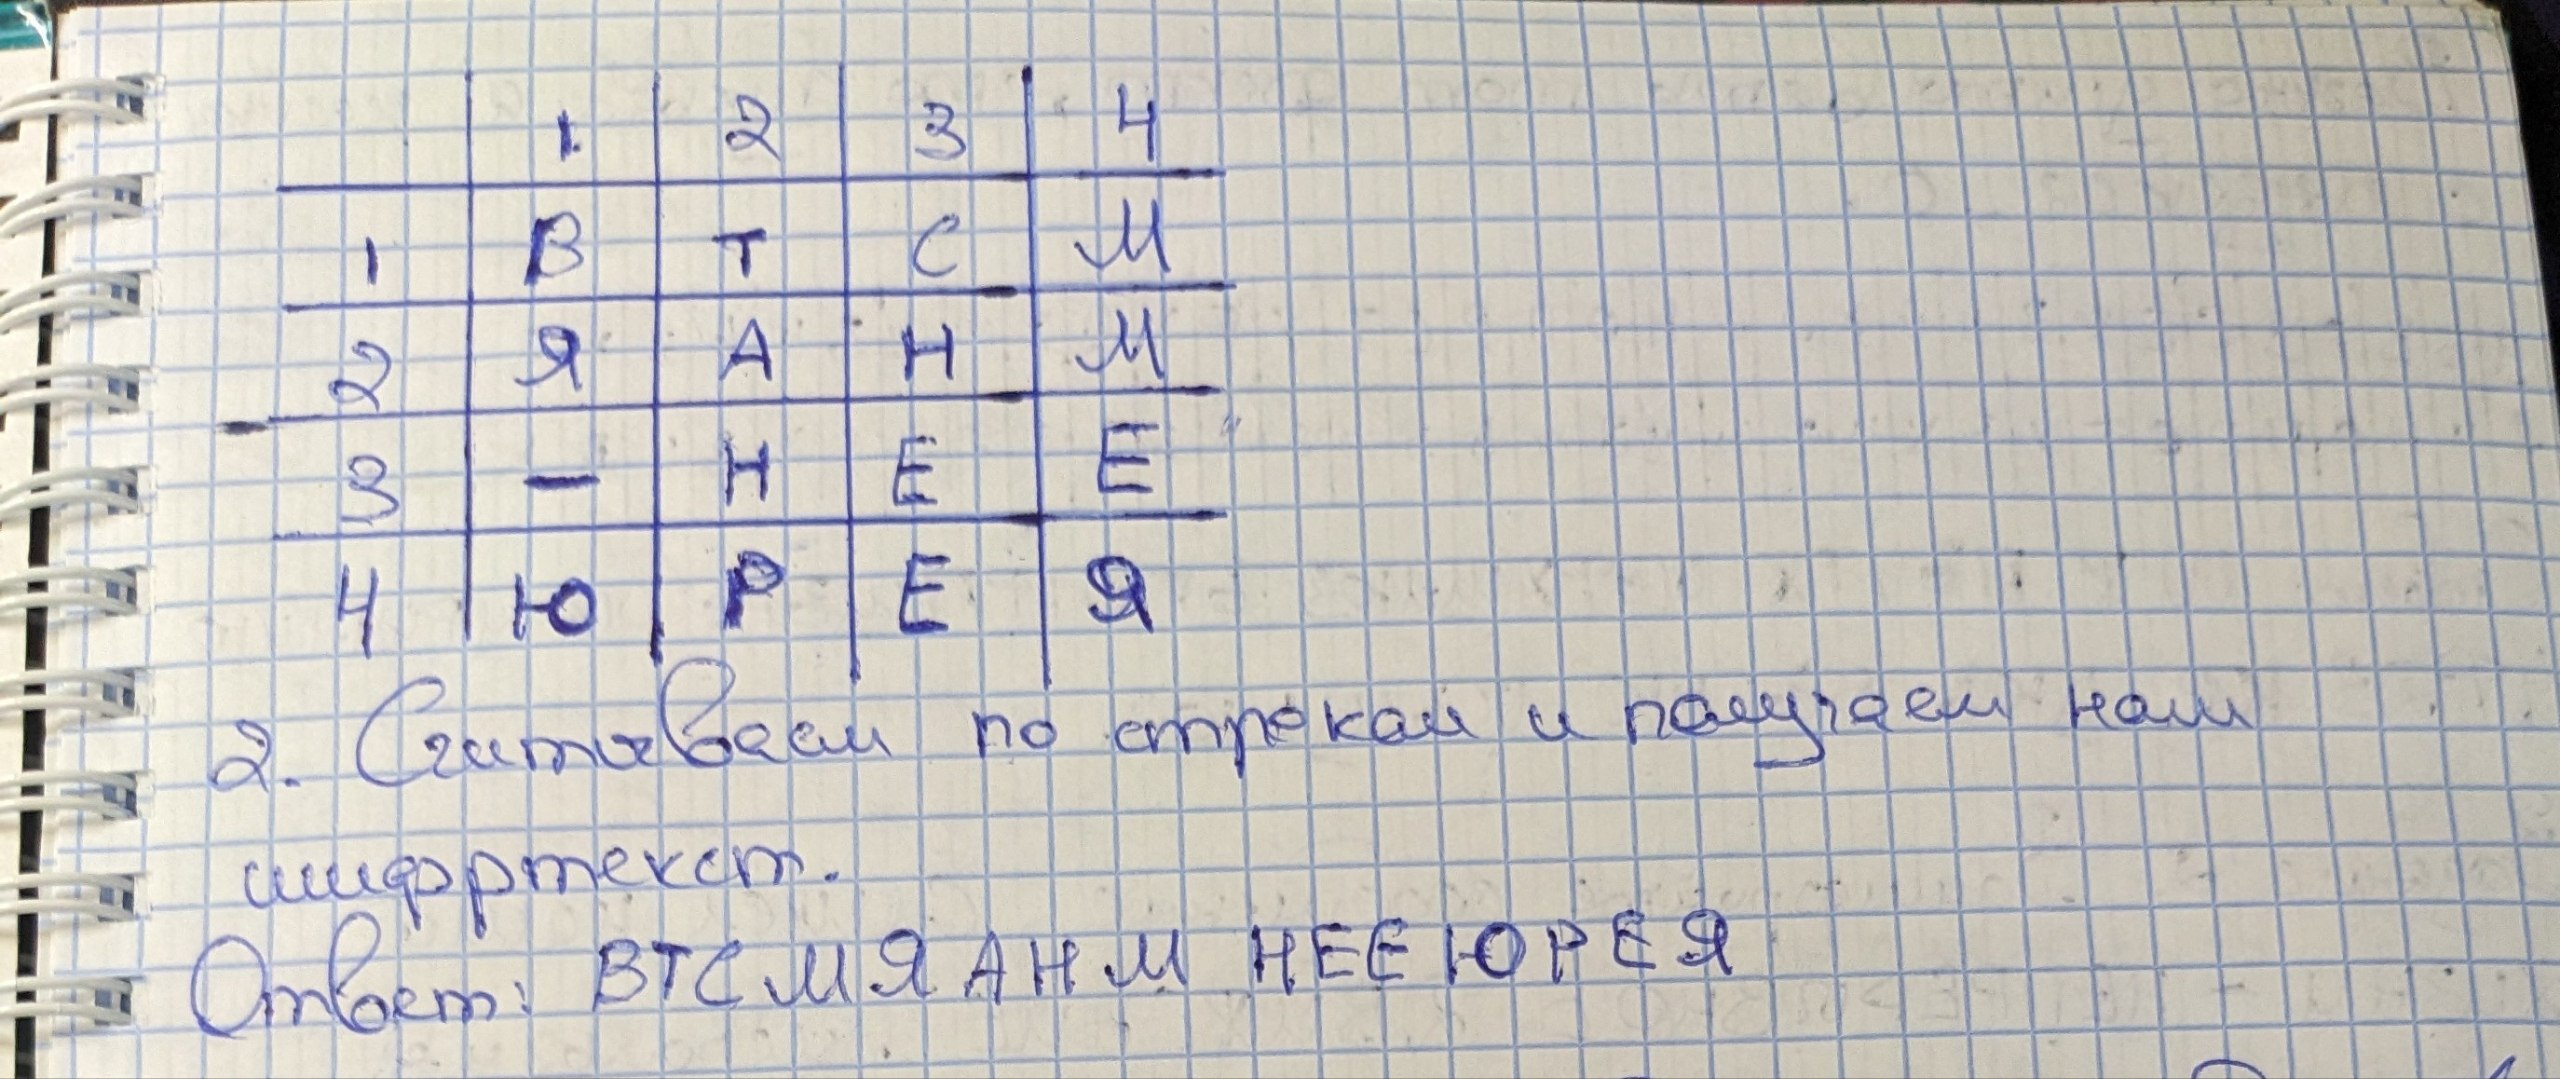 1. 2 3 4
1 В Т С М
2 Я А Н М
3 — Н Е Е
4 Ю Р Е Я
2. Считываем по строкам и получаем наш
шифртекст.
Ответ: ВТСМЯАНМ НЕЕЮРЕЯ